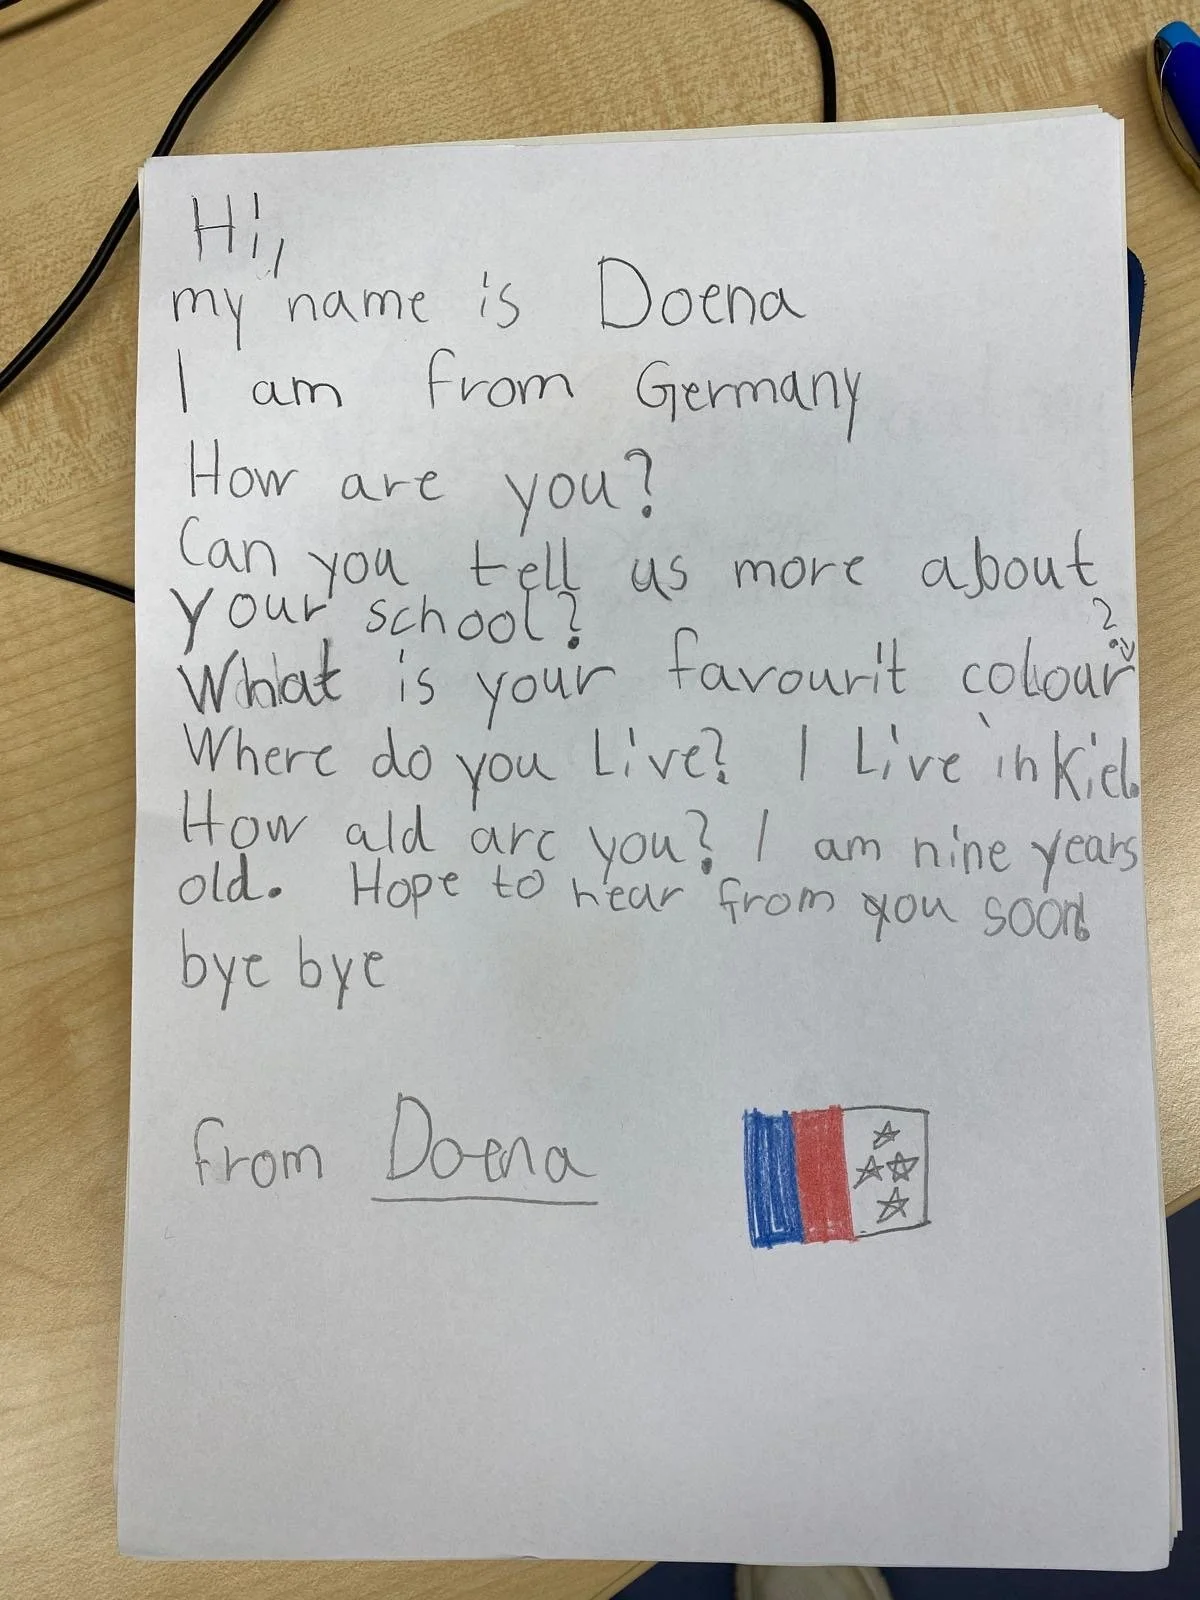 Hi,
my name is Doena
I am from Germany
How are you?
Can you tell us more about
your school?
What is your favourit colour?
Where do you Live? I Live in Kiel.
How ald are you? I am nine years
old. Hope to hear from you soon!
bye bye
from Doena